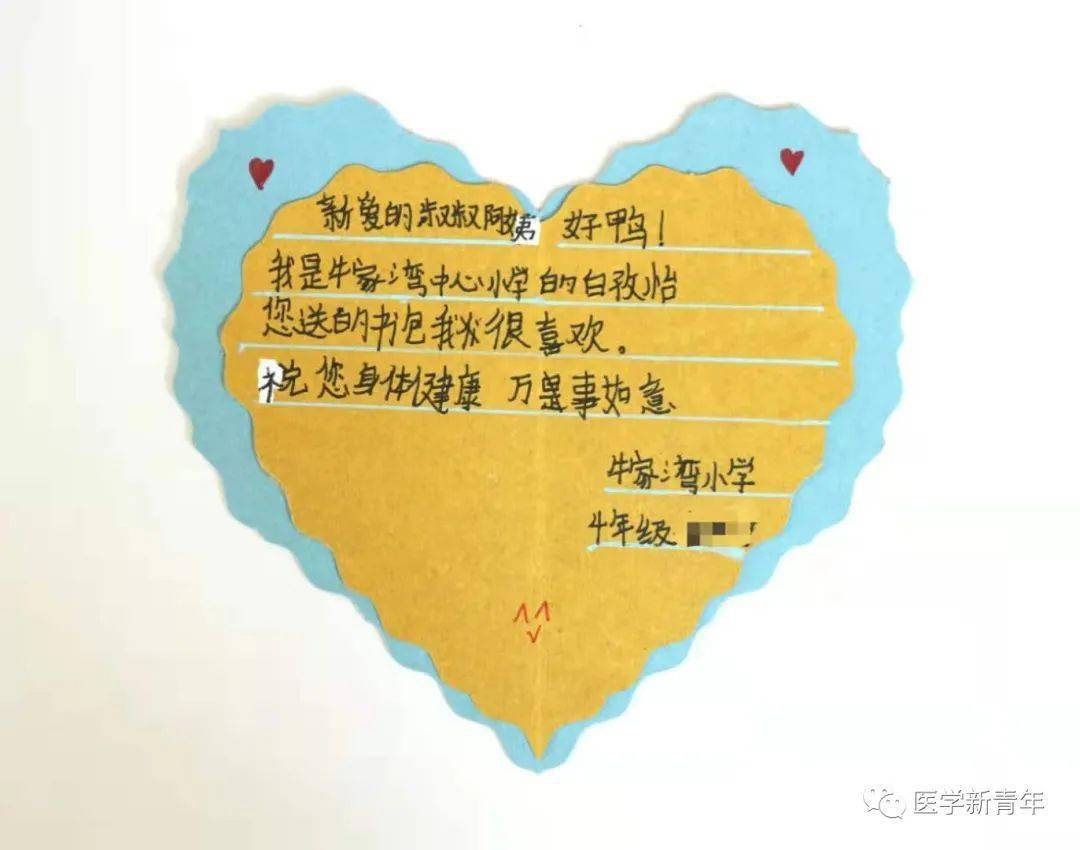 新爱的叔叔阿姨 好鸭！
我是牛家湾中心小学的白孜怡
您送的书包我必很喜欢。
祝您身体健康 万是事如意
牛家湾小学
4年级
医学新青年